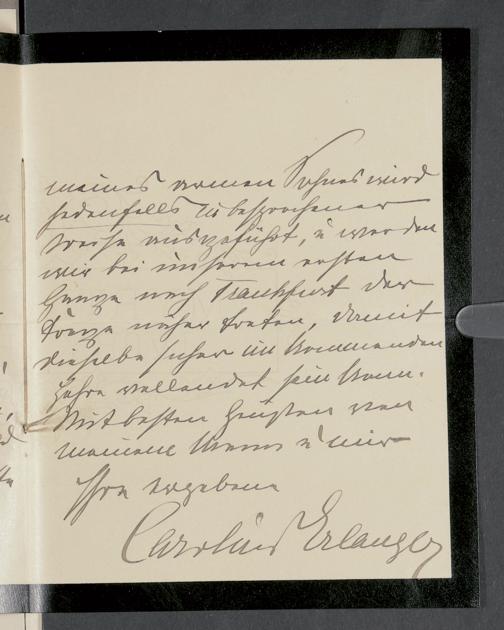 meines armen Sohnes wird
jedenfalls in besprochener
Weise ausgeführt, u werden
wir bei unserem ersten
Gange nach Frankfurt der
Frage näher treten, damit
dieselbe sicher im kommenden
Jahre vollendet sein kann.
Mit besten Grüßen von
meinem Mann u mir
Ihre ergebene
Caroline Erlanger